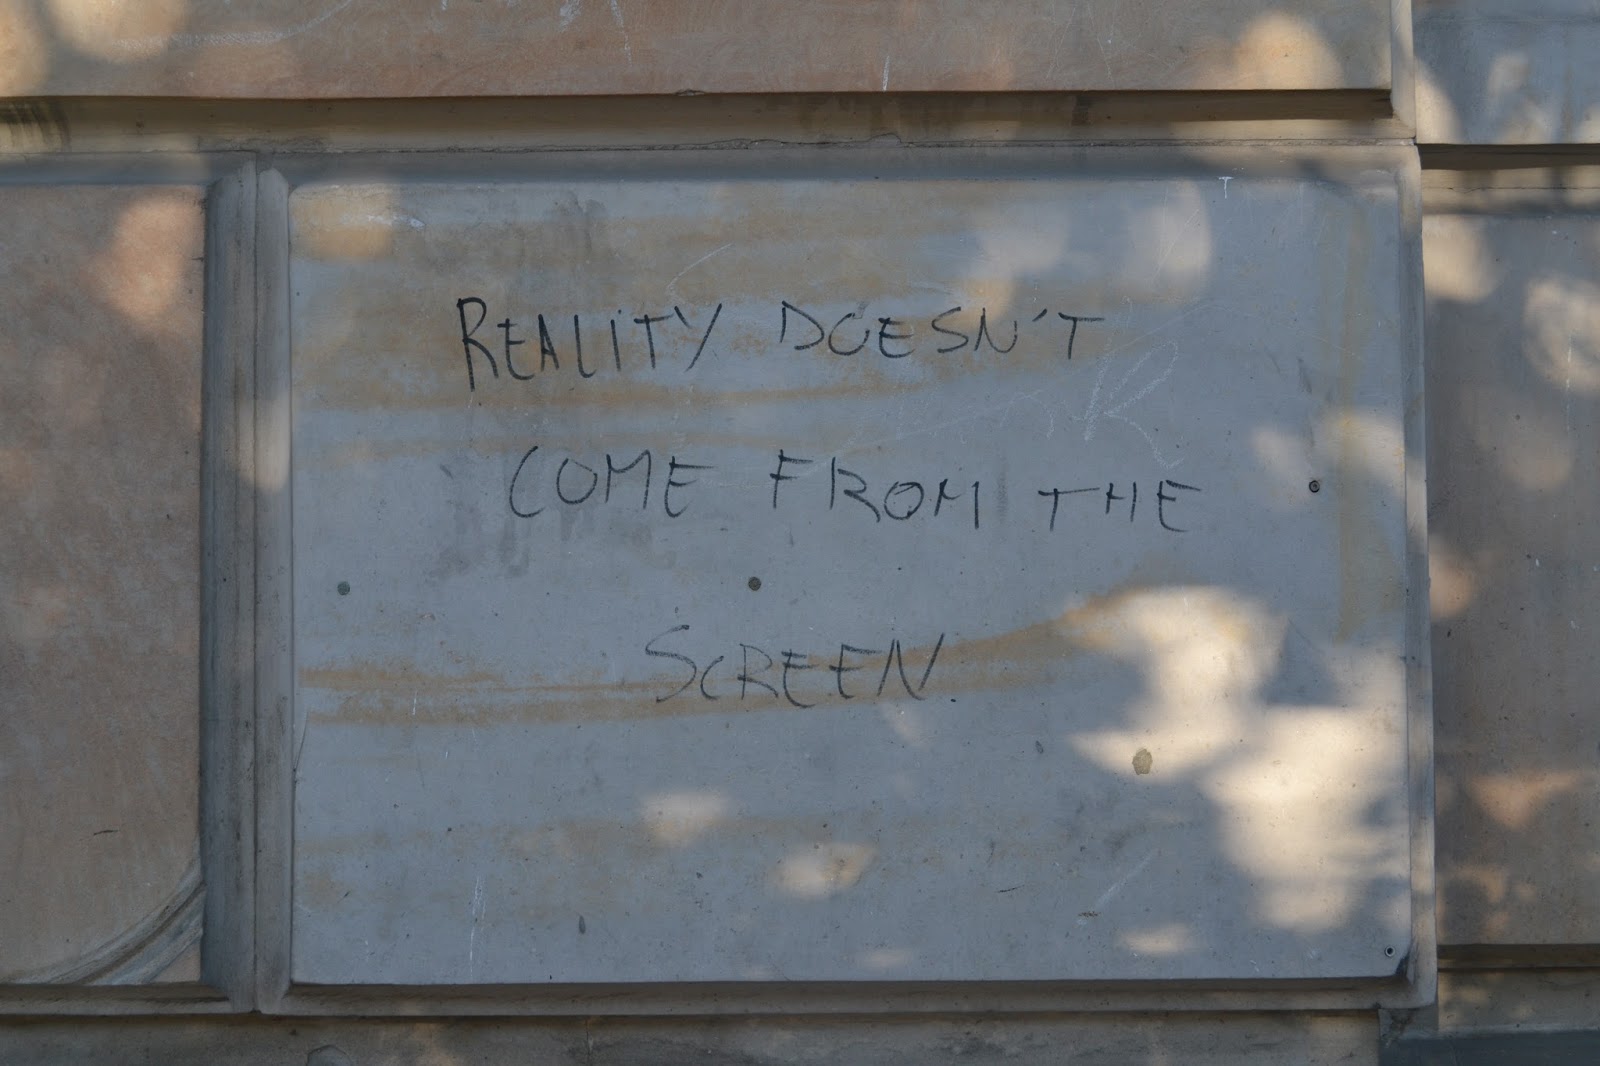 REALITY DOESN'T
COME FROM THE
SCREEN